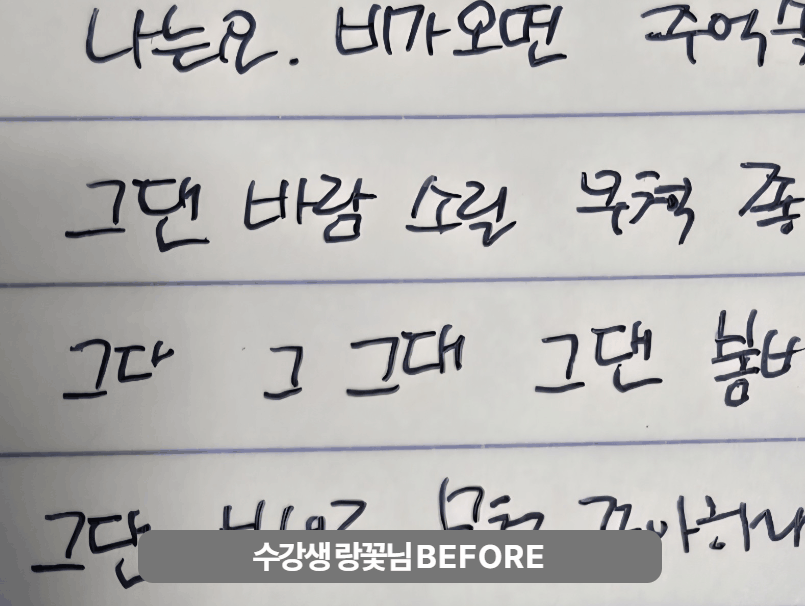 나는요. 비가오면 추억
그댄 바람 소릴 무척 좋
그다 그 그대 그댄 봄바
그댄
수강생 랑꽃님 BEFORE